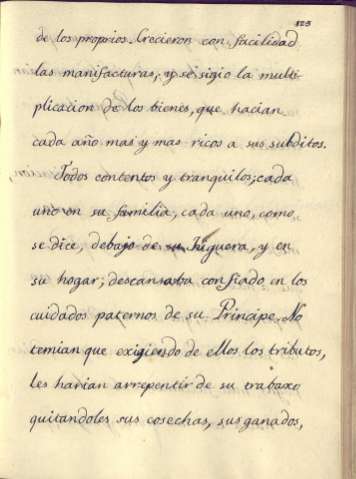 123
de los proprios. Crecieron con facilidad
las manifacturas, y se sigio la multi-
plicacion de los bienes, que hacian
cada año mas y mas ricos a sus subditos.
Todos contentos y tranquilos; cada
uno en su familia, cada uno, como
se dice, debajo de su higuera, y en
su hogar; descansaba confiado en los
cuidados paternos de su Principe. No
temian que exigiendo de ellos los tributos,
les harian arrepentir de su trabaxo
quitandoles sus cosechas, sus ganados,